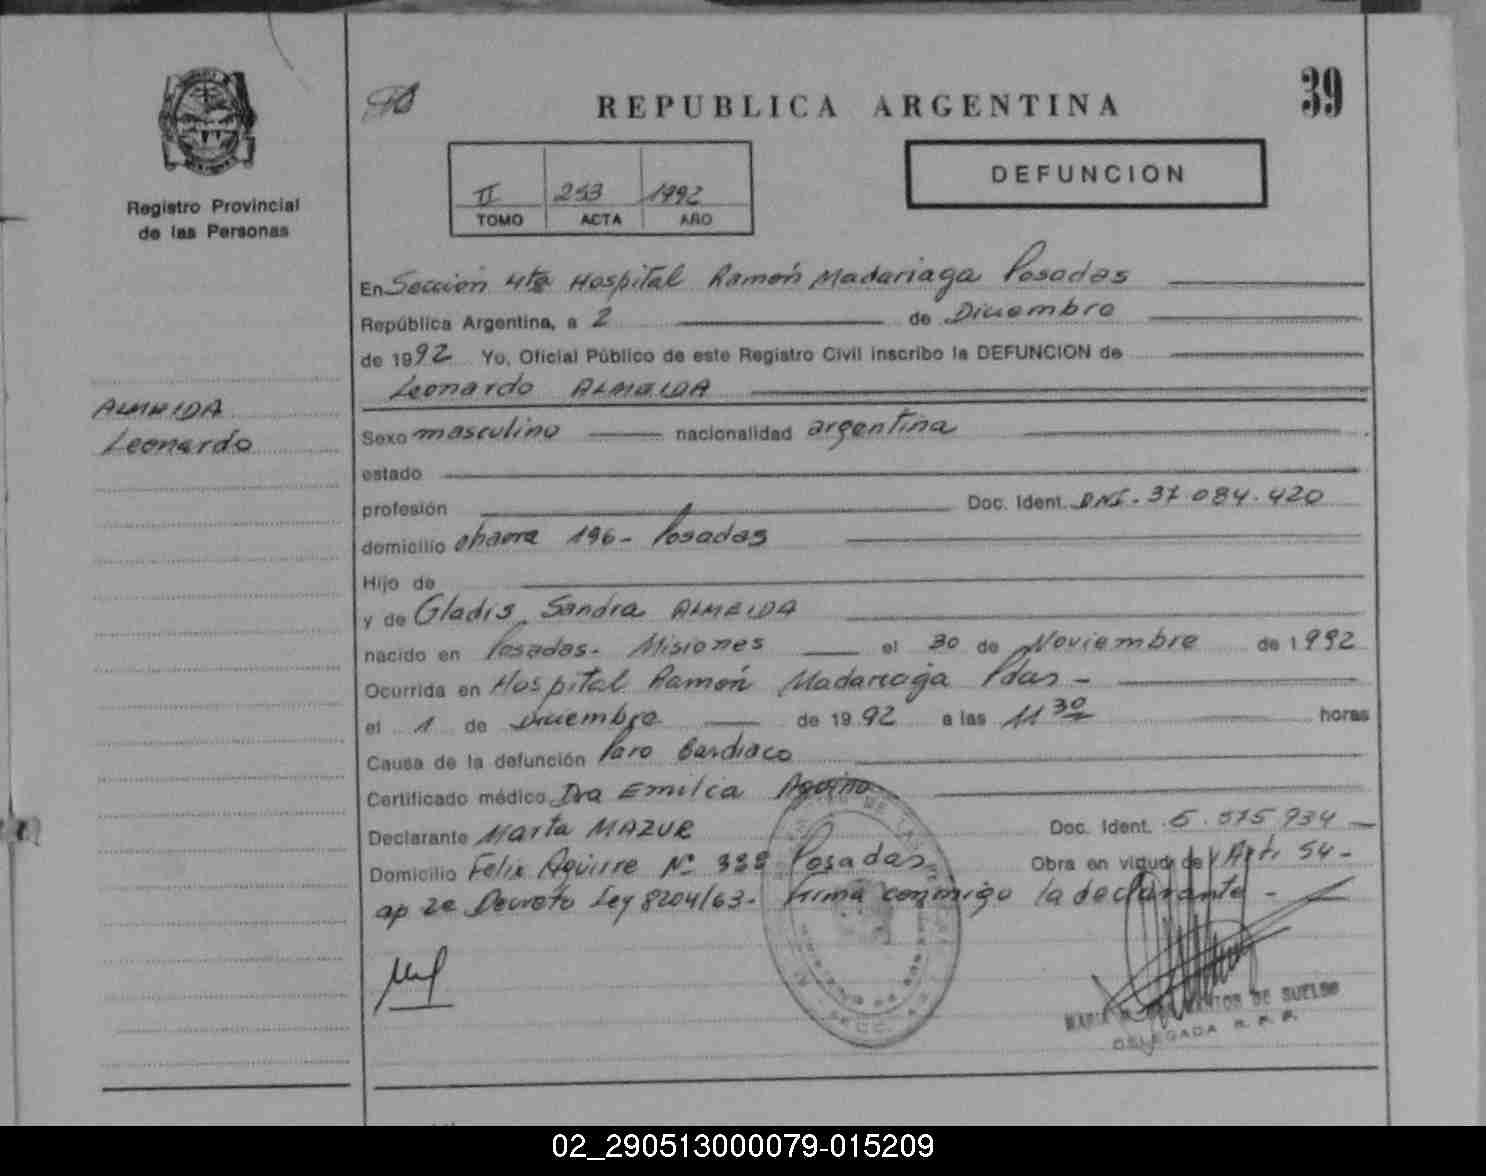 39
REPUBLICA ARGENTINA
DEFUNCION
II 253 1992
TOMO ACTA AÑO
Registro Provincial
de las Personas
ALMEIDA
Leonardo
En Sección 4ta Hospital Ramón Madariaga Posadas
República Argentina, a 2 de Diciembre
de 1992 Yo, Oficial Público de este Registro Civil inscribo la DEFUNCION de
Leonardo ALMEIDA
Sexo masculino nacionalidad argentina
estado
profesión Doc. Ident. DNI. 37.084.420
domicilio chacra 196 - Posadas
Hijo de
y de Gladis Sandra ALMEIDA
nacido en Posadas - Misiones el 30 de Noviembre de 1992
Ocurrida en Hospital Ramón Madariaga Pdas -
el 1 de Diciembre de 1992 a las 11 30 horas
Causa de la defunción Paro Cardiaco
Certificado médico Dra Emilia Aquino
Declarante Marta MAZUR Doc. Ident. 5.575.934
Domicilio Felix Aguirre Nº 388 Posadas Obra en virtud de Art. 54 -
ap 2e Decreto Ley 8204/63 - Firma conmigo la declarante -
MARIA DE SUELDO
DELEGADA R. P. P.
02_290513000079-015209